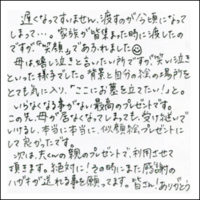 遅くなってすいません、渡すのが今頃になって
しまって…。家族が皆集まった時に渡したの
ですが“笑顔”であふれました☺
母は嬉し泣きと言いたい所ですが“笑い泣き”
といった様子でした。背景と自分の絵の場所を
とても気に入り、“ここにお墓を立てたい!”と。
いらなくなる事がない最高のプレゼントです。
この先、母が居なくなってしまっても、受け継いで
いけるし、本当に本当に、似顔絵プレゼントに
して良かったです。
次は、夫くんの親のプレゼントで利用させて
頂きます。絶対に!その時にまた感謝の
ハガキが送れる事を願ってます。皆さん!ありがとう